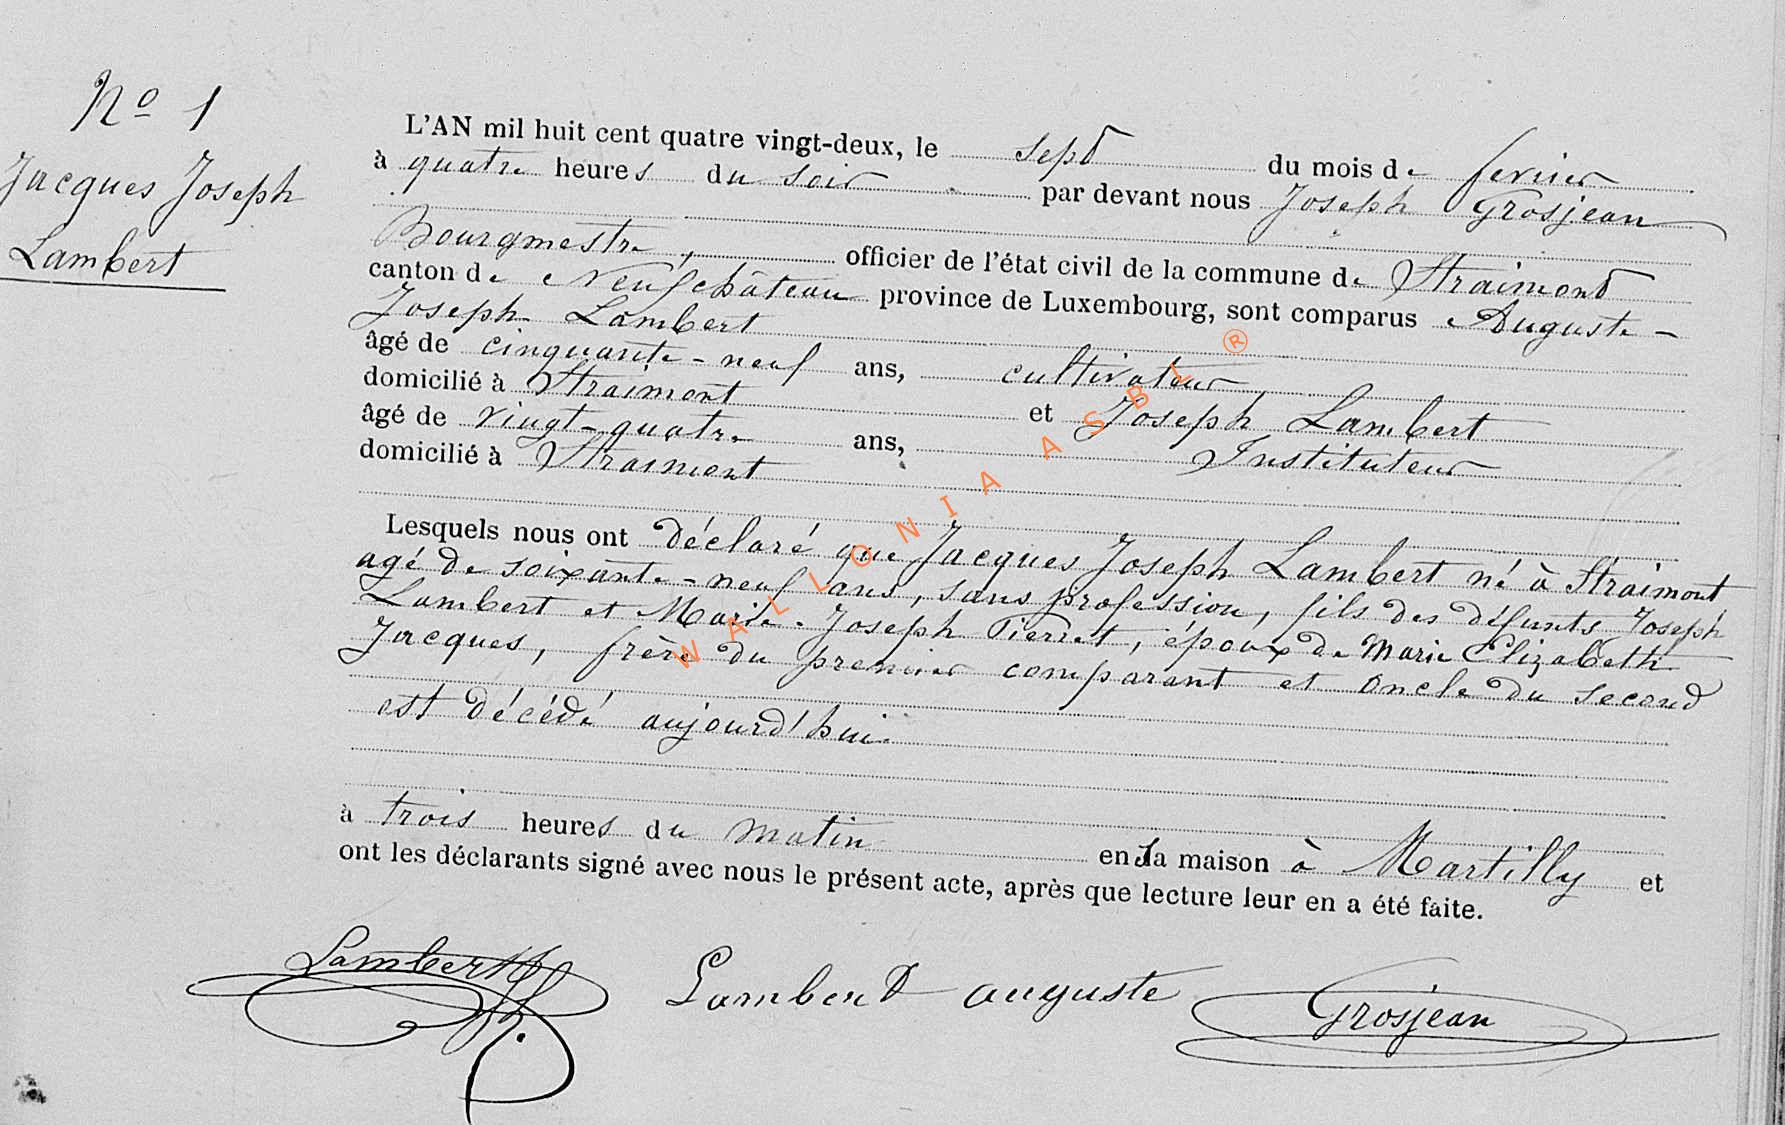 No 1
Jacques Joseph
Lambert
L'AN mil huit cent quatre vingt-deux, le sept du mois de fevrier
à quatre heures du soir par devant nous Joseph Grosjean
Bourgmestre, officier de l'état civil de la commune de Straimont
canton de Neufchâteau province de Luxembourg, sont comparus Auguste-
Joseph Lambert
âgé de cinquante-neuf ans, cultivateur
domicilié à Straimont et Joseph Lambert
âgé de vingt-quatre ans, Instituteur
domicilié à Straimont
Lesquels nous ont déclaré que Jacques Joseph Lambert né à Straimont
agé de soixante-neuf ans, sans profession, fils des défunts Joseph
Lambert et Marie-Joseph Pierret, époux de Marie Elizabeth
Jacques, frère du premier comparant et oncle du second
est décédé aujourd'hui
à trois heures du matin en sa maison à Martilly et
ont les déclarants signé avec nous le présent acte, après que lecture leur en a été faite.
Lambert Lambert auguste Grosjean
WALLONIA ASBL ®